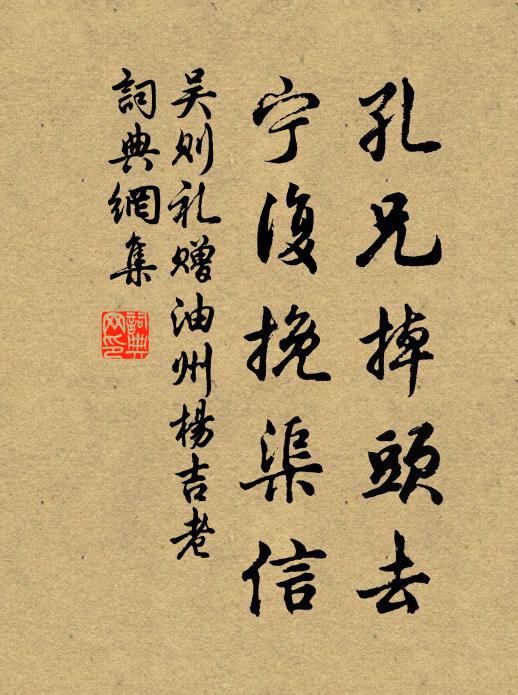 孔兄掉頭去
宁復挽渠信
吴则礼赠油州楊吉老
詞典網集
詞典网印